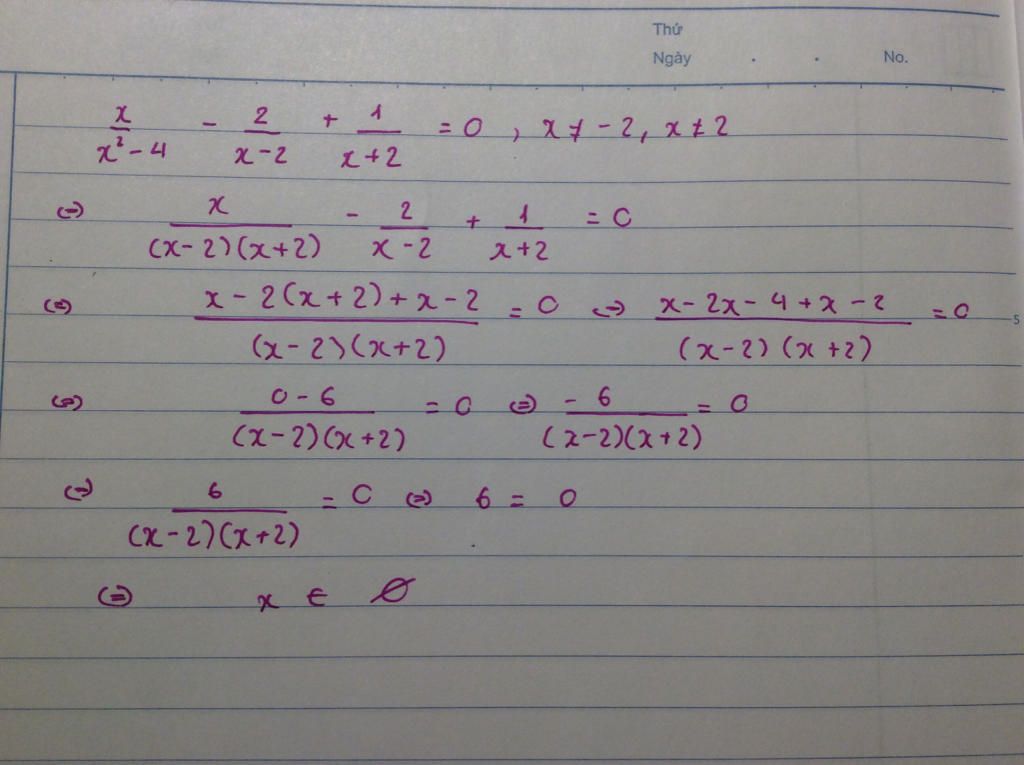 Thứ
Ngày . . No.
x/(x² - 4) - 2/(x - 2) + 1/(x + 2) = 0 , x ≠ -2, x ≠ 2
⇔ x/((x - 2)(x + 2)) - 2/(x - 2) + 1/(x + 2) = 0
⇔ (x - 2(x + 2) + x - 2)/((x - 2)(x + 2)) = 0 ⇔ (x - 2x - 4 + x - 2)/((x - 2)(x + 2)) = 0
5
⇔ (0 - 6)/((x - 2)(x + 2)) = 0 ⇔ (- 6)/((x - 2)(x + 2)) = 0
⇔ 6/((x - 2)(x + 2)) = 0 ⇔ 6 = 0
⇔ x ∈ ∅